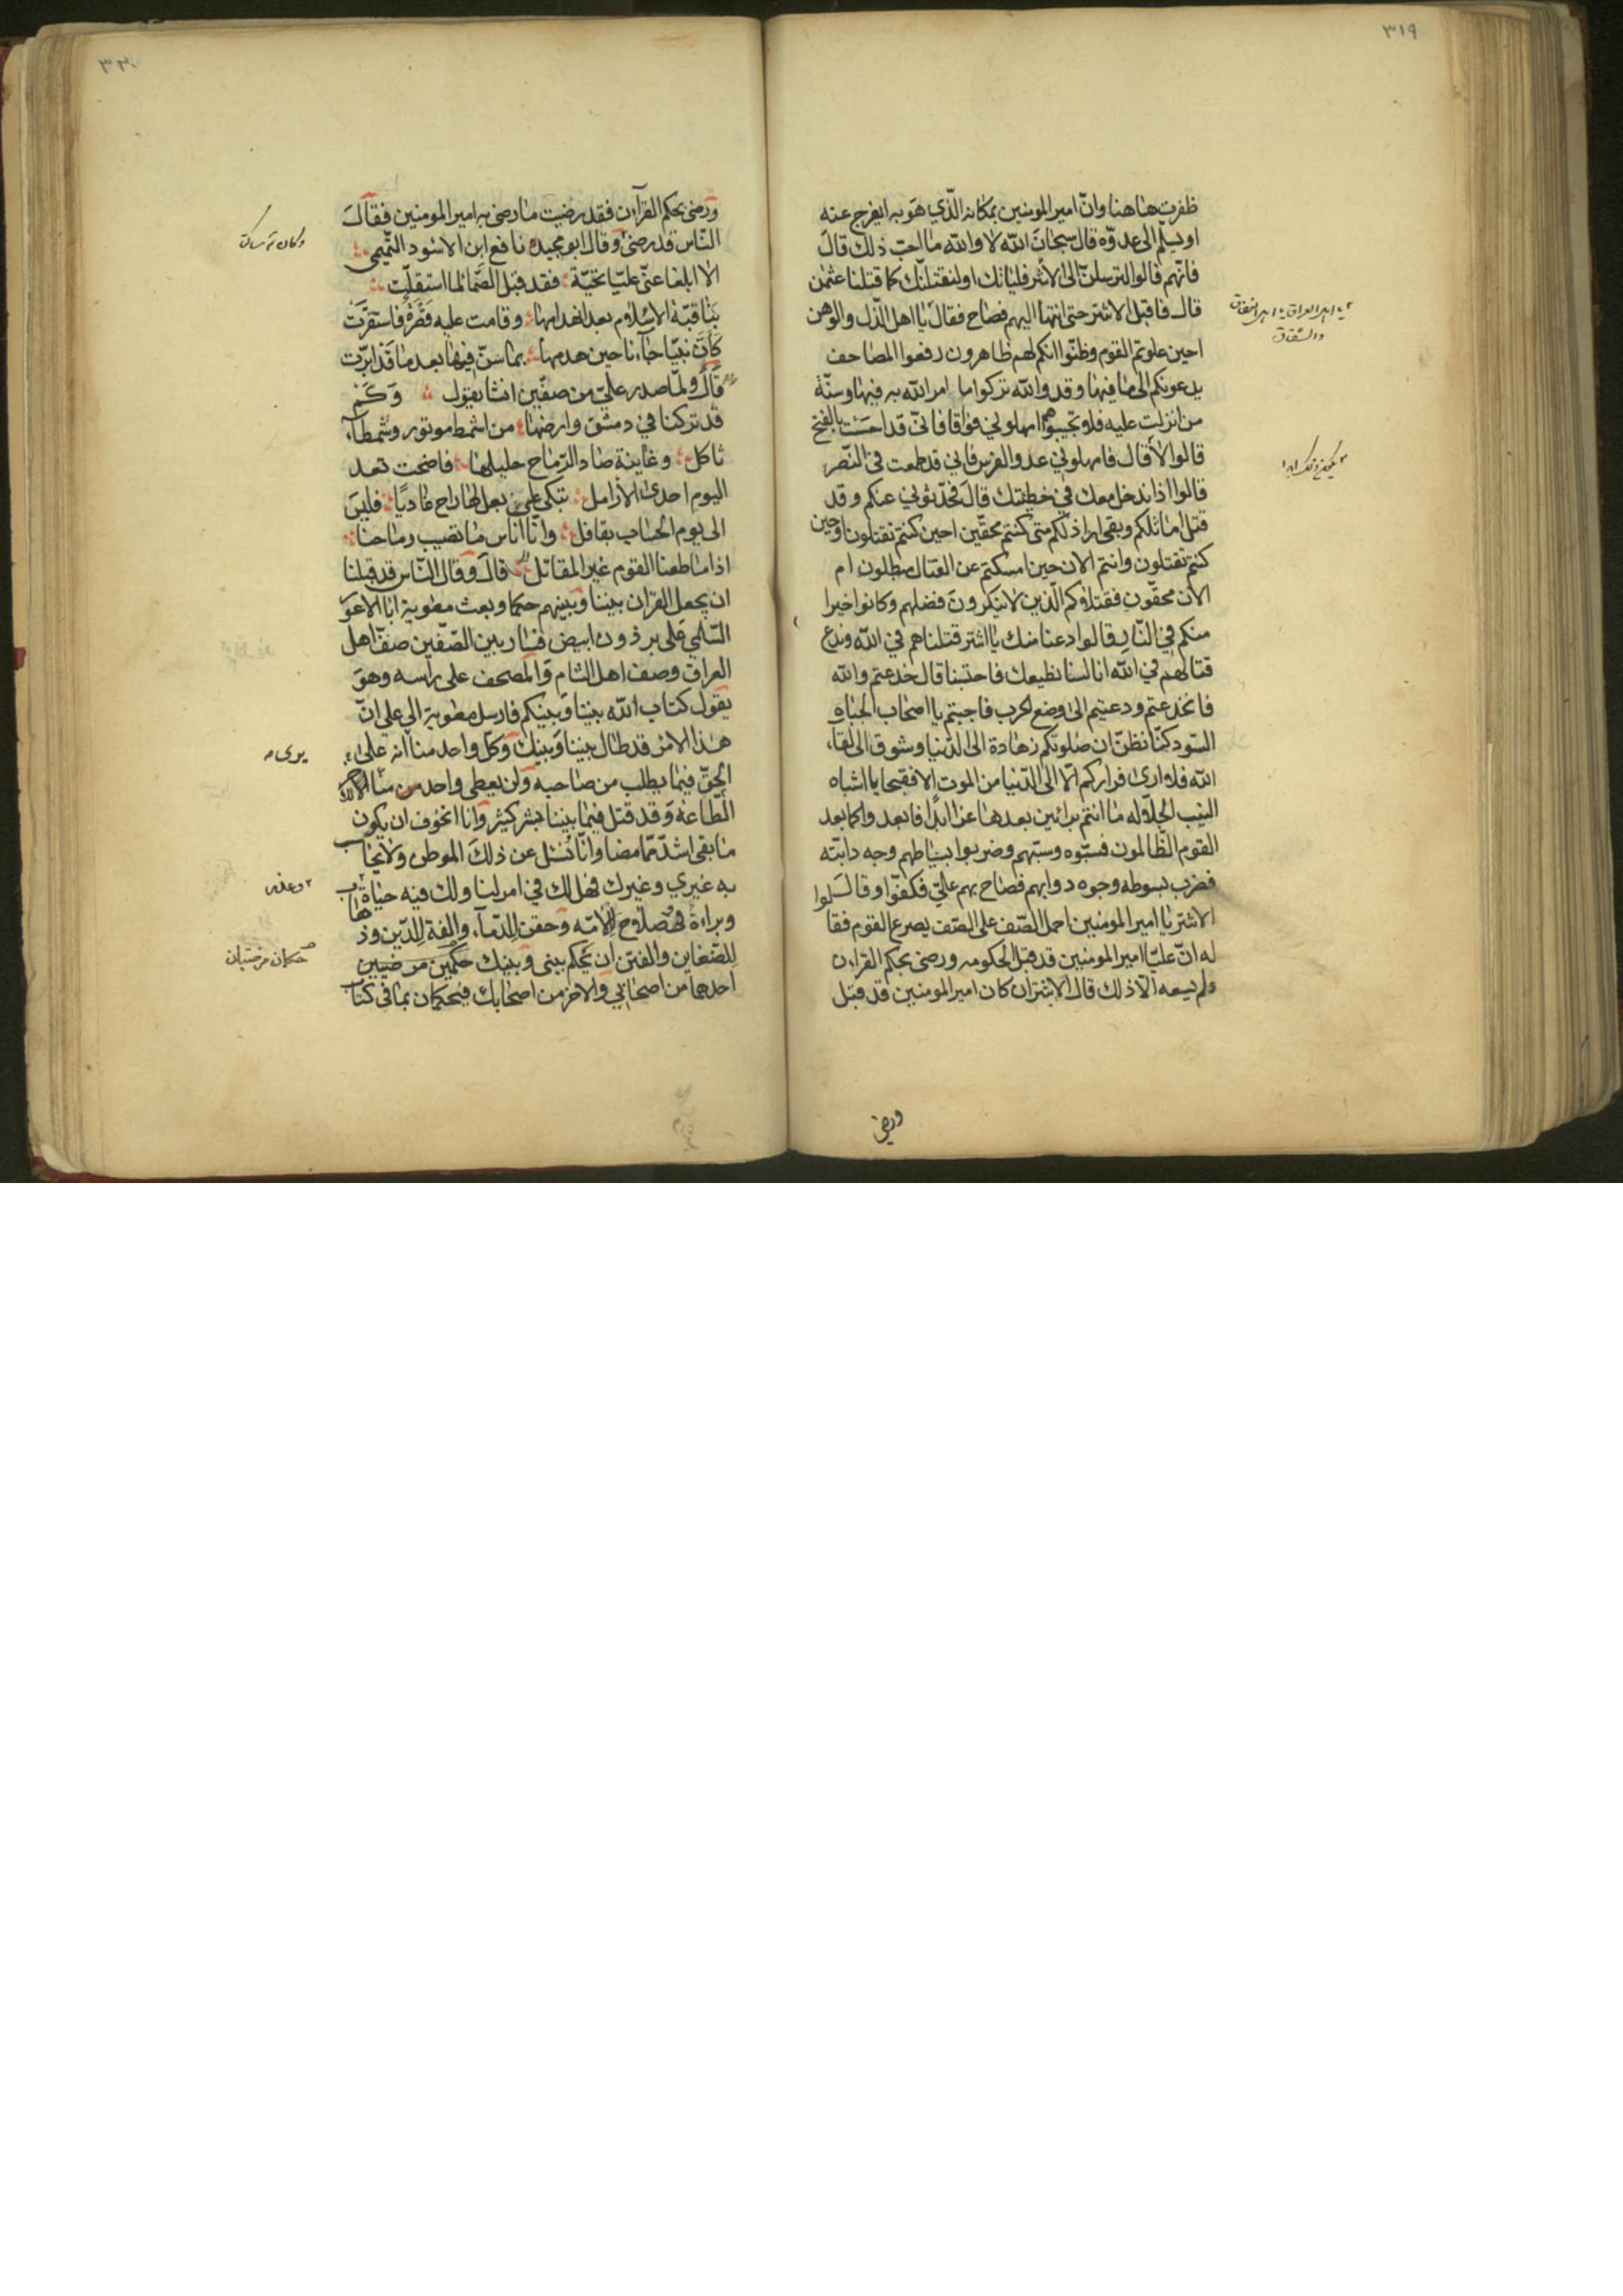 ٣١٩
ظفرت هاهنا وانّ امير المومنين بمكانه الّذي هو به ايفرج عنه
او يسلم الى عدوّه قال سبحان الله لا والله ما احبّ ذلك قال
فانّهم قالوا لترسلنّ الى الاشتر فلياتك او لنقتلنّك كما قتلنا عثمن
قال فاقبل الاشتر حتى انتها اليهم فصاح فقال يا اهل الذّل والوهن
احين علوتم القوم وظنّوا انكم لهم ظاهرون رفعوا المصاحف
يدعونكم الى ما فيها وقد والله تركوا ما امر الله به فيها وسنّة
من انزلت عليه فلا تجيبوهم امهلوني فواقا فانّى قد احسست بالفتح
قالوا لا قال فامهلوني عدو الفرس فاني قد طمعت في النّصر
قالوا اذا ندخل معك في خطيئتك قال فحدّثوني عنكم وقد
قتل اماثلكم وبقى اراذلكم متى كنتم محقّين احين كنتم تقتلون وحين
كنتم تقتلون وانتم الان حين امسكتم عن القتال مبطلون ام
الان محقّون فقتلاؤكم الّذين لا تنكرون فضلهم وكانوا خيرا
منكم في النّار قالوا دعنا منك يا اشتر قتلناهم في الله وندع
قتالهم في الله انا لسنا نطيعك فاجتنبنا قال خدعتم والله
فانخدعتم ودعيتم الى وضع الحرب فاجبتم يا اصحاب الجباه
السّود كنّا نظنّ ان صلوتكم زهادة الى الدّنيا وشوق الى لقاء
الله فلا ارى فراركم الّا الى الدّنيا من الموت الا فقبحا يا اشباه
النيب الجلّاله ما انتم برائين بعدها عزا ابدًا فابعدوا كما بعد
القوم الظّالمون فسبّوه وسبّهم وضربوا بسياطهم وجه دابّته
فضرب بسوطه وجوه دوابهم فصاح بهم عليّ فكفّوا وقال
الاشتر يا امير المومنين احمل الصّف على الصّف يصرع القوم فقالوا
له انّ عليّا امير المومنين قد قبل الحكومه ورضى بحكم القران
ولم يسعه الّا ذلك قال الاشتر ان كان امير المومنين قد قبل
يا اهل العراق يا اهل النفاق
والشقاق
ورضى
ورضى بحكم القرآن فقد رضيت ما رضى به امير المومنين فقال
النّاس قد رضى وقال ابو مجيد نافع ابن الاسود التّميمى
الا ابلغا عنّى عليّا تحيّة فقد قبل الصّمّا لما استقلّت
بنا قبّة الاسلام بعد انهدامها وقامت عليه قصرة فاستقرّت
كأنّ نبيّا جاءنا حين هدمها بما سنّ فيها بعد ما قد ابرّت
قال ولمّا صدر علىّ من صفّين انشا يقول وكم
قد تركنا في دمشق وارضها من اشمط موتور وشمطاء
ثاكل وغانية صاد الرّماح حليلها فاضحت تعد
اليوم احدى الأرامل تبكى على بعل لها راح غاديًا فليس
الى يوم الحساب بقافل وانّا اناس ما تصيب رماحنا
اذا ما طعنا القوم غير المقاتل قال وقال النّاس قد قبلنا
ان يجعل القران بيننا وبينهم حكما وبعث معوية ابا الاعور
السّلمي على برذون ابيض فسار بين الصّفّين صفّ اهل
العراق وصف اهل الشام والمصحف على راسه وهو
يقول كتاب الله بيننا وبينكم فارسل معوية الى علي انّ
هذا الامر قد طال بيننا وبينك وكلّ واحد منا انه على
الحقّ فيما يطلب من صاحبه ولن يعطى واحد منّا الاخر
الطّاعة وقد قتل فيما بيننا بشر كثير وانا اتخوف ان يكون
ما بقى اشدّ ممّا مضا وانّا نسئل عن ذلك الموطن ولا يحاسب
به غيري وغيرك فهل لك في امر لنا ولك فيه حياة
وبراءة وصلاح للامّه وحقن للدّماء والفة للدّين وذهاب
للضّغاين والفتن ان يحكم بينى وبينك حكمين مرضيين
احدهما من اصحابي والاخر من اصحابك فيحكمان بما فى كتاب
يرى
وعذر
حكمان مرضيان